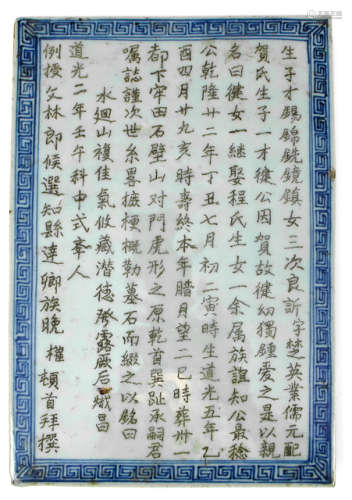 生子才錫錦銑鏡鎮女三次良訢字楚英業儒元配
賀氏生子一才徤公因賀故徤幼獨鍾愛之是以親
名曰徤女一継娶程氏生女一余属族誼知公最稔
公乾隆廿二年丁丑七月初二寅時生道光五年乙
酉四月廿九亥時壽終本年腊月望二巳時葬卅一
都下窂田石壁山对門虎形之原乾首巽趾承嗣君
囑誌謹次世系畧摭梗概勒墓石而綴之以銘曰
水迴山複佳氣攸藏潜德發露厥后熾昌
道光二年壬午科中式舉人
例授文林郎候選知縣達鄉族晚權頓首拜撰